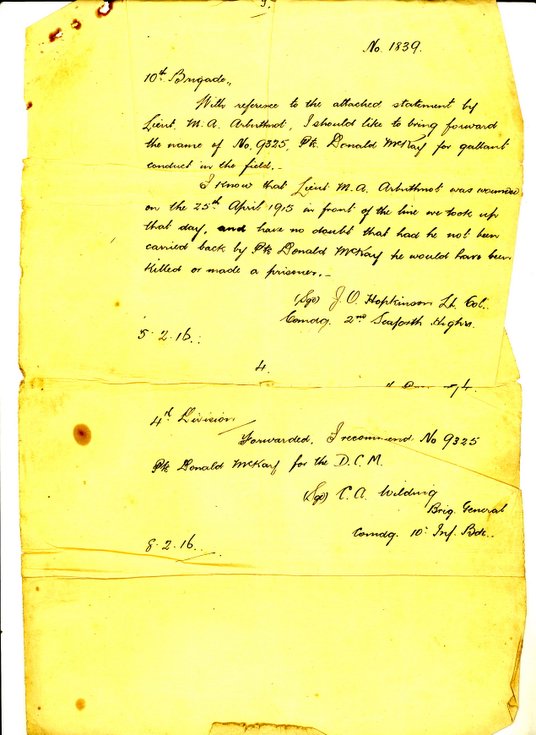 3.
No. 1839.
10th Brigade,,
With reference to the attached statement by
Lieut. M.A. Arbuthnot, I should like to bring forward
the name of No. 9325, Pte Donald McKay for gallant
conduct in the field.-
I know that Lieut M.A. Arbuthnot was wounded
on the 25th April 1915 in front of the line we took up
that day, and have no doubt that had he not been
carried back by Pte Donald McKay he would have been
killed or made a prisoner.-
(Sgd) J.O. Hopkinson Lt. Col.
Comdg. 2nd Seaforth Highrs.
5.2.16.
4.
4th Division
Forwarded. I recommend No 9325
Pte Donald McKay for the D.C.M.
(Sgd) C.A. Wilding
Brig. General
Comdg. 10th Inf. Bde..
8.2.16..